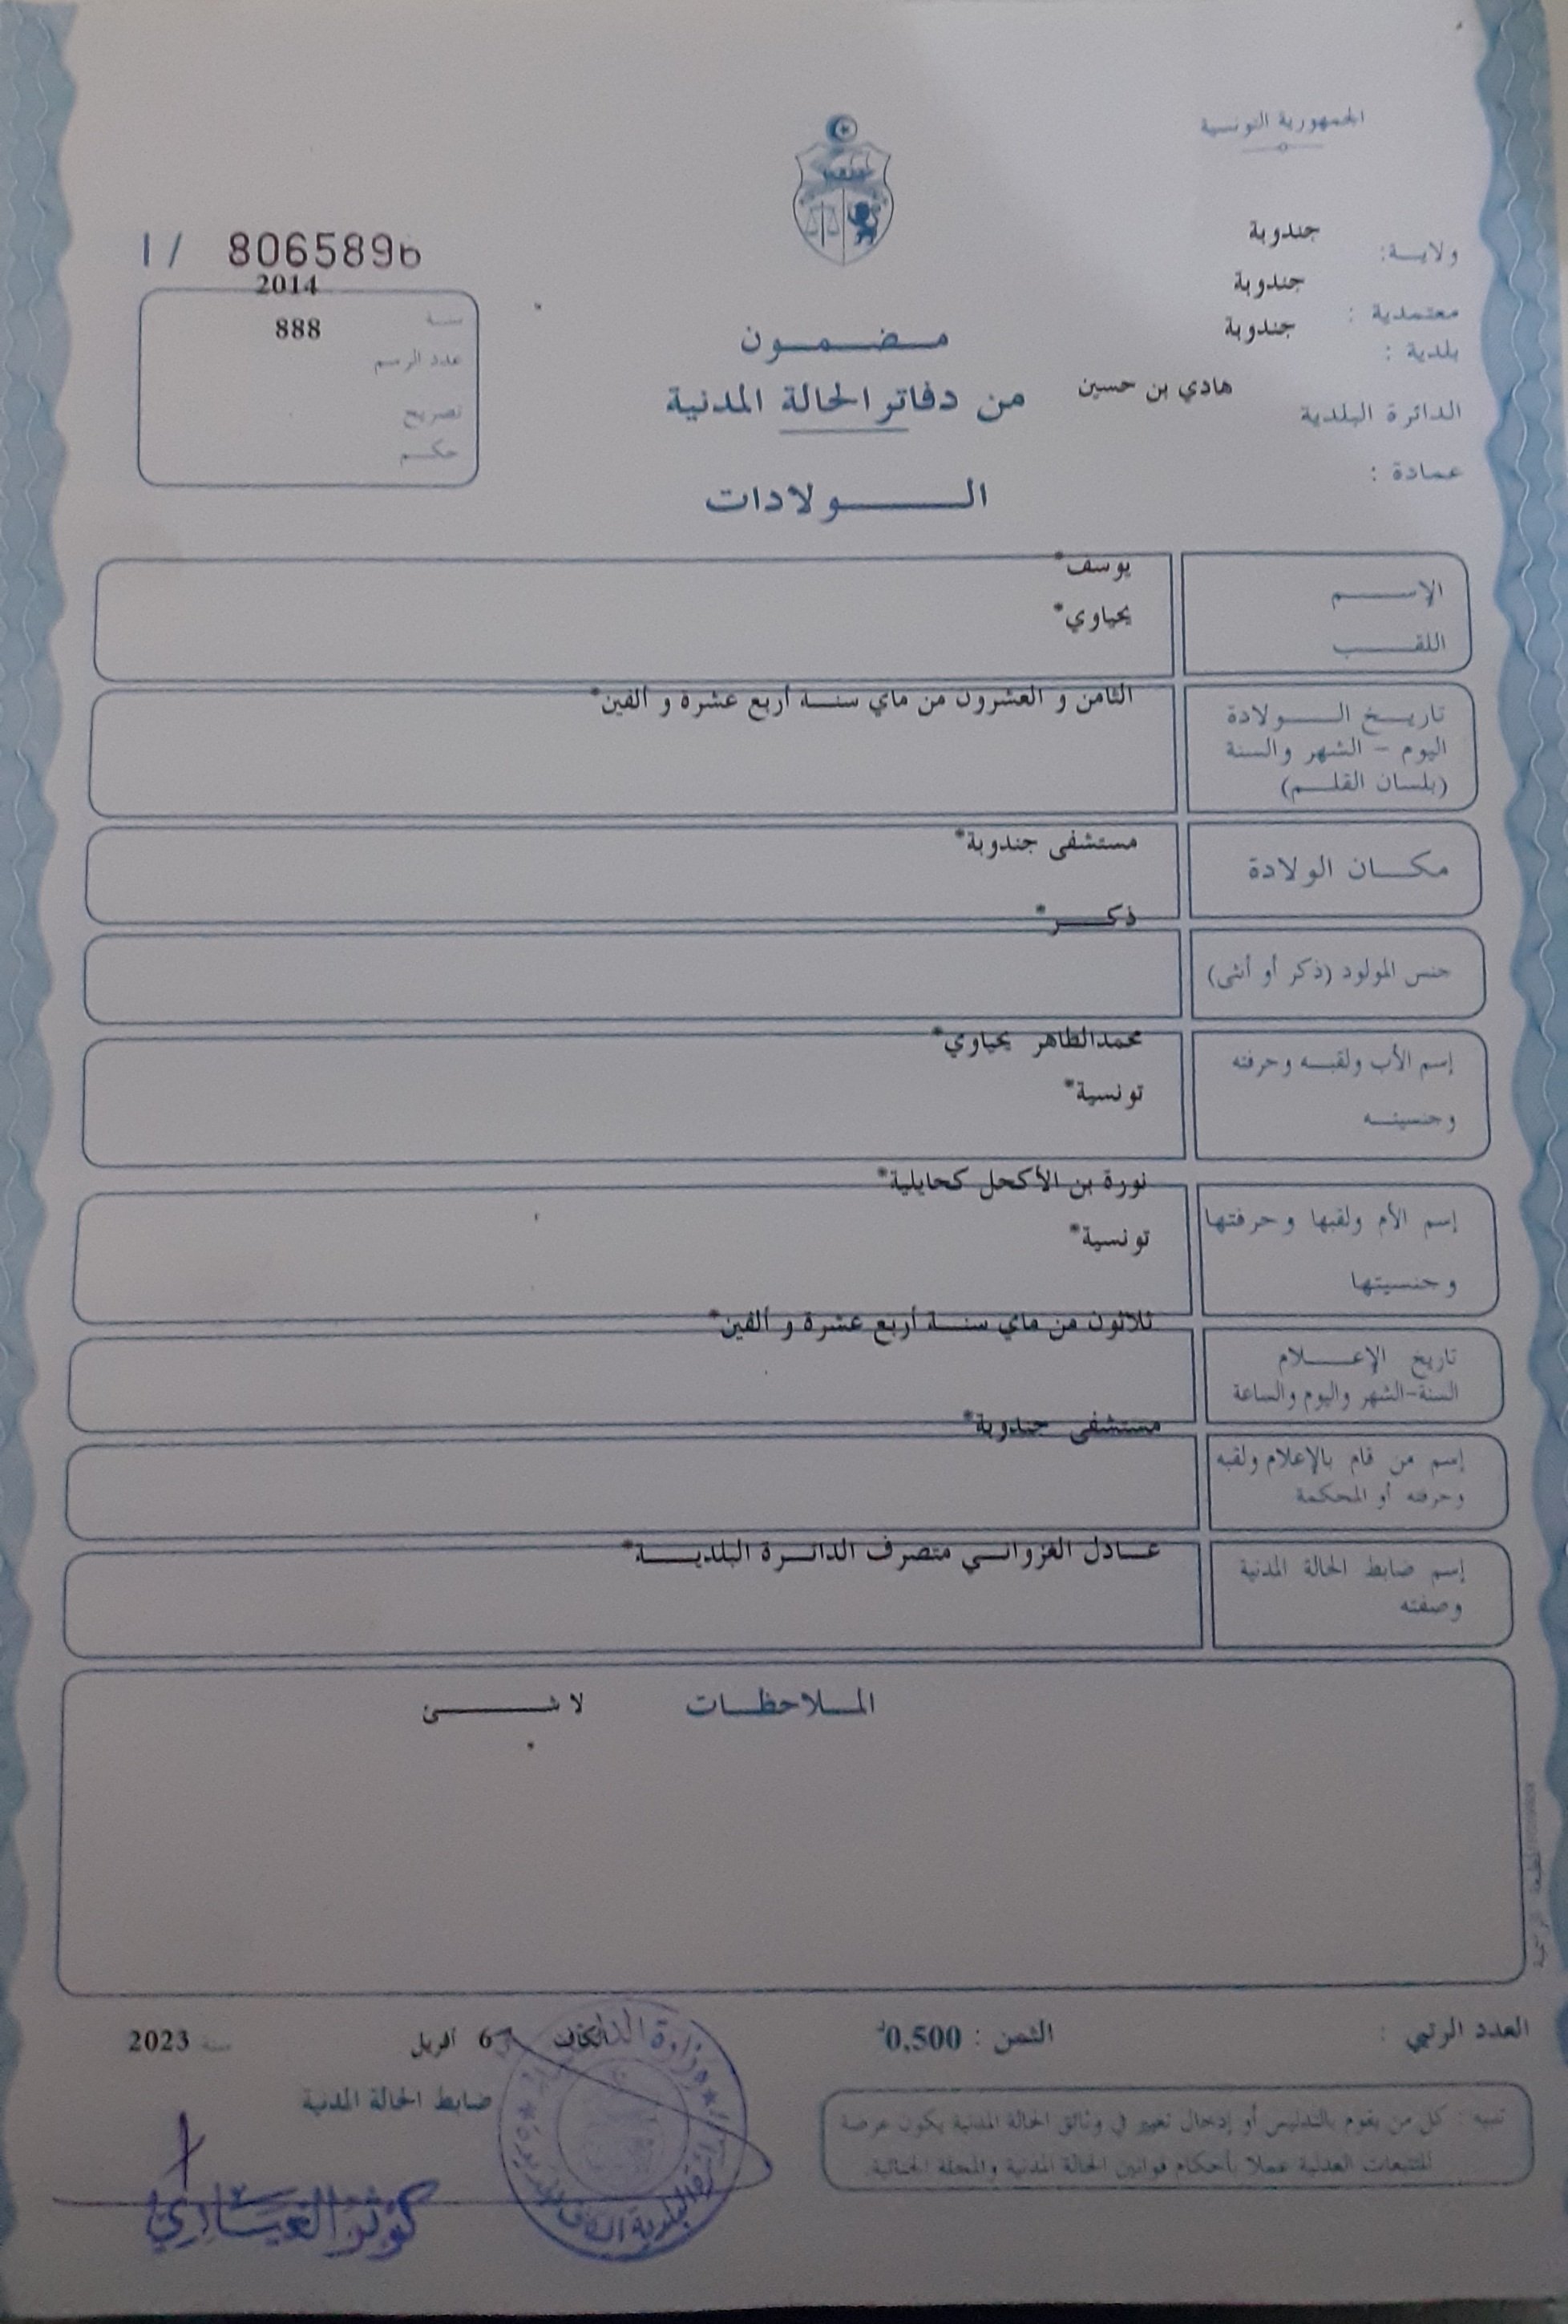 الجمهورية التونسية
ولايـة: جندوبة
معتمدية : جندوبة
بلدية : جندوبة
الدائرة البلدية هادي بن حسين
عمادة :
مـضـمـون
من دفاتر الحالة المدنية
الـولادات
I / 8065896
سنة 2014
عدد الرسم 888
تصريح
حكم
الإسـم يوسف*
اللقـب يحياوي*
تاريـخ الـولادة الثامن و العشرون من ماي سنة أربع عشرة و ألفين*
اليوم - الشهر والسنة
(بلسان القلـم)
مكـان الولادة مستشفى جندوبة*
جنس المولود (ذكر أو أنثى) ذكـر*
إسم الأب ولقبـه وحرفته محمدالطاهر يحياوي*
وجنسيتـه تونسية*
إسم الأم ولقبها وحرفتها نورة بن الأكحل كحايلية*
وجنسيتها تونسية*
تاريخ الإعـلام ثلاثون من ماي سنة أربع عشرة و ألفين*
السنة-الشهر واليوم والساعة
إسم من قام بالإعلام ولقبه مستشفى جندوبة*
وحرفته أو المحكمة
إسم ضابط الحالة المدنية عـادل الغزوانـي متصرف الدائـرة البلديـة*
وصفته
المـلاحظـات لا شـئ
العدد الرتبي :
الثمن : 0,500د
الكاف 6 أفريل سنة 2023
ضابط الحالة المدنية
تنبيه : كل من يقوم بالتدليس أو إدخال تغيير في وثائق الحالة المدنية يكون عرضة
للتتبعات العدلية عملا بأحكام قوانين الحالة المدنية والمجلة الجنائية.
كوثر العيادي